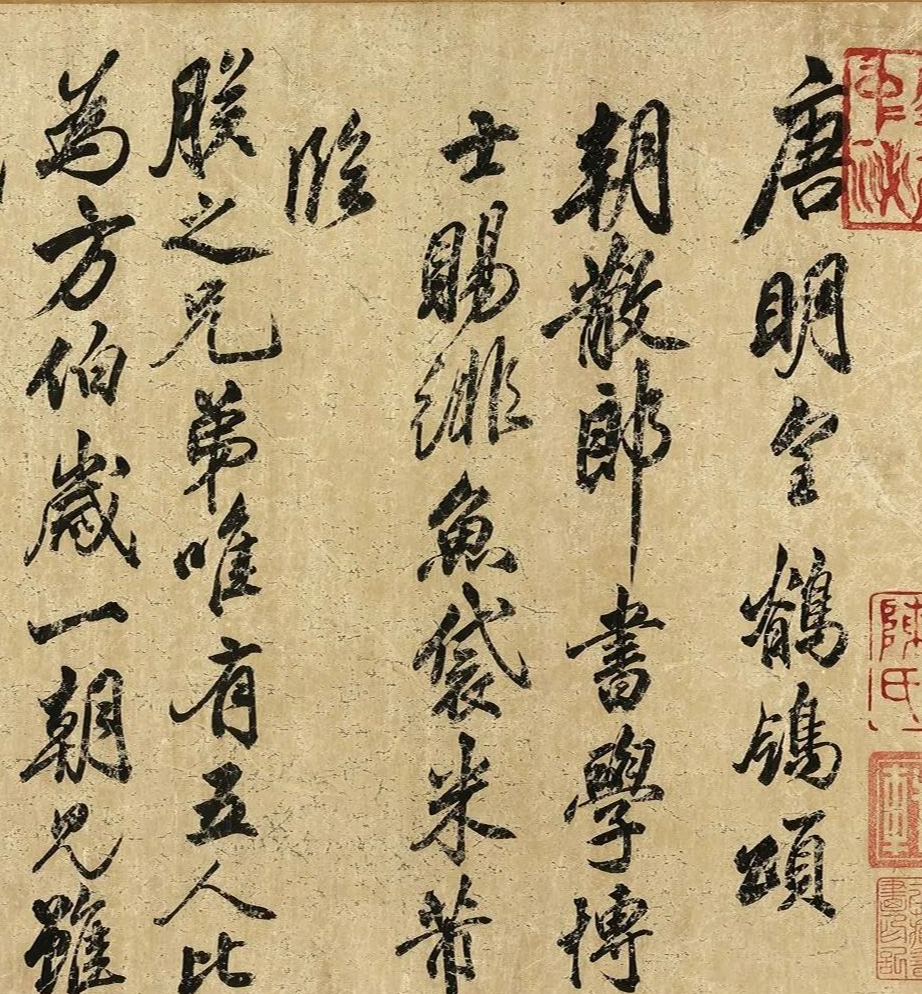 唐明皇鶺鴒頌
朝散郎書學博
士賜緋魚袋米芾
臨
朕之兄弟唯有五人比
為方伯歲一朝見雖
陳氏